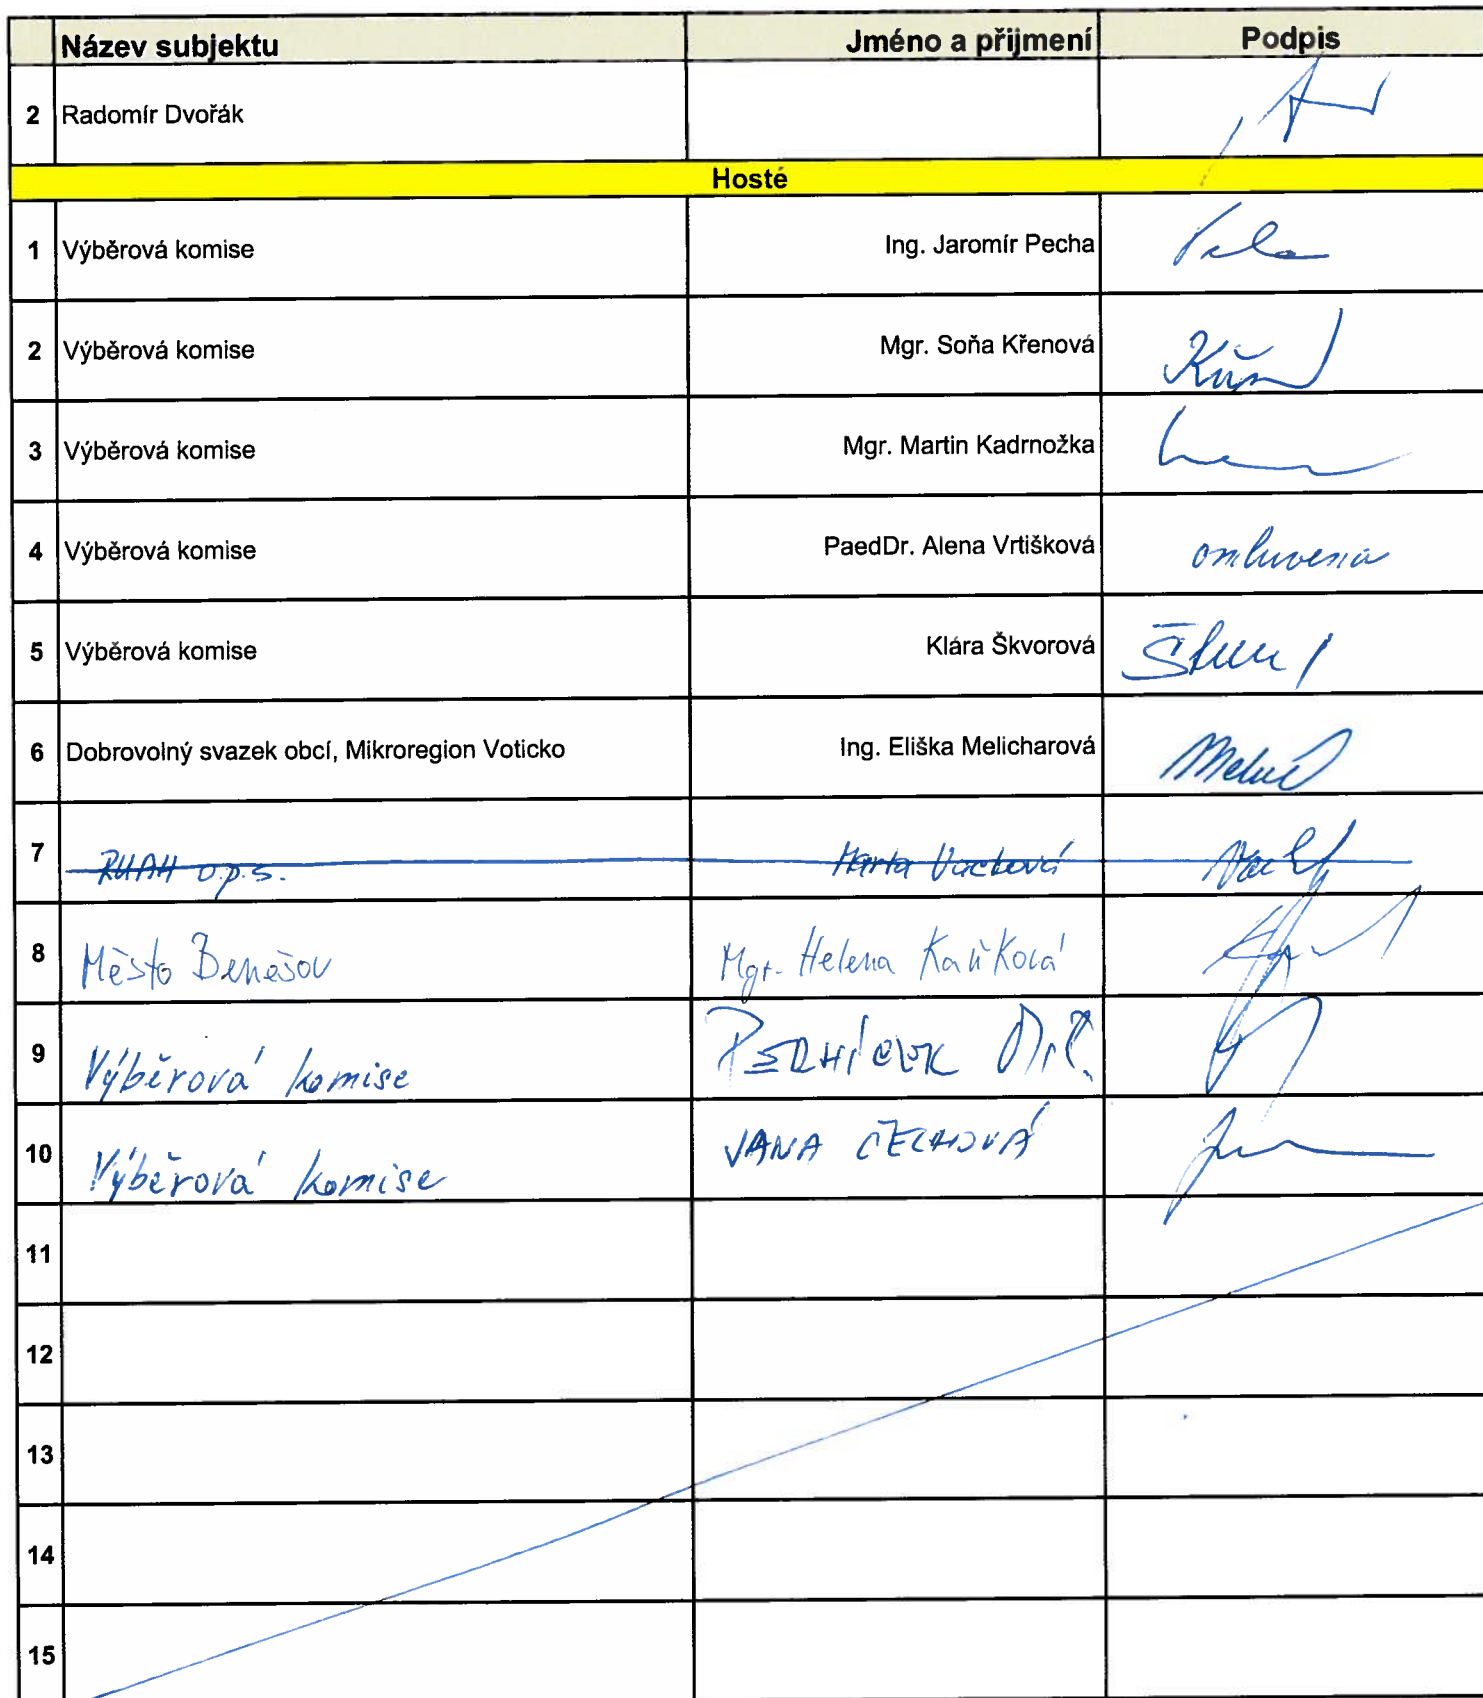 Název subjektu Jméno a přijmení Podpis
2 Radomír Dvořák
Hosté
1 Výběrová komise Ing. Jaromír Pecha
2 Výběrová komise Mgr. Soňa Křenová
3 Výběrová komise Mgr. Martin Kadrnožka
4 Výběrová komise PaedDr. Alena Vrtišková omluvena
5 Výběrová komise Klára Škvorová
6 Dobrovolný svazek obcí, Mikroregion Voticko Ing. Eliška Melicharová
7 RUAH o.p.s. Marta Vacková
8 Město Benešov Mgr. Helena
9 Výběrová komise
10 Výběrová komise JANA ČECHOVÁ
11
12
13
14
15